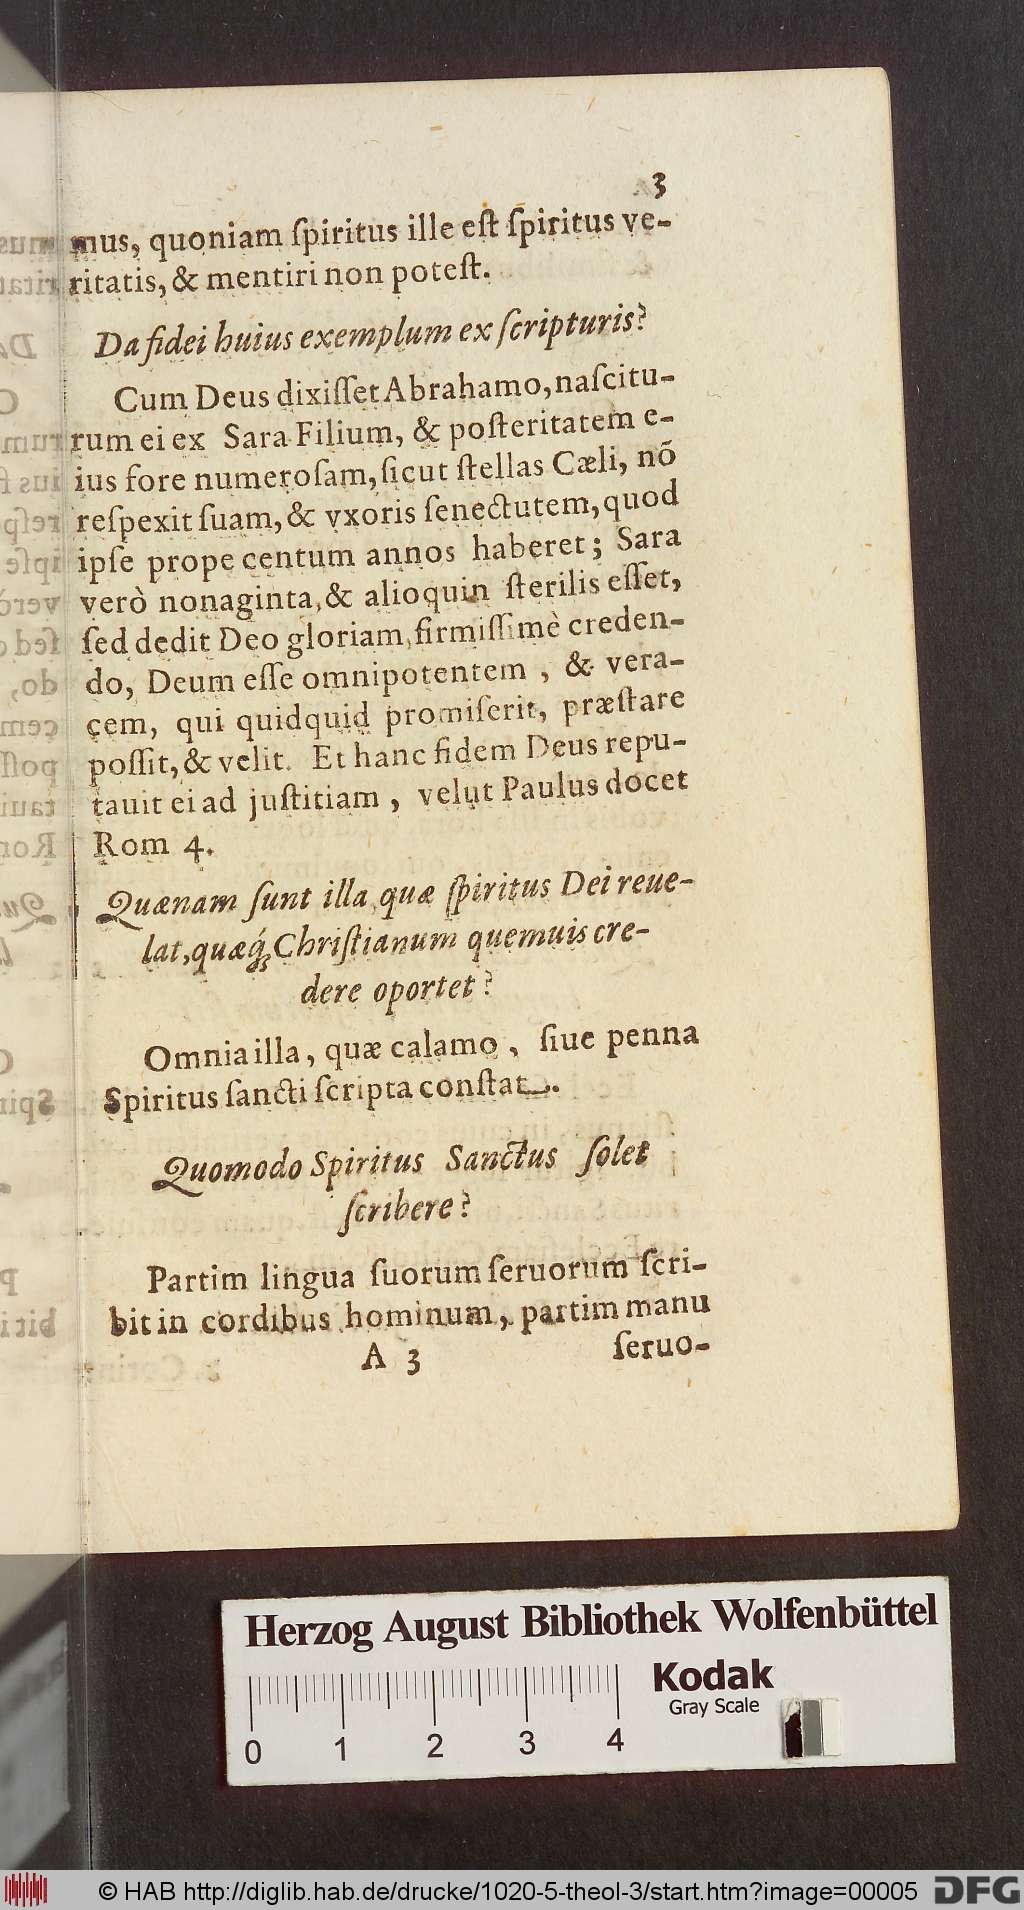 3
mus, quoniam ſpiritus ille eſt ſpiritus ve-
ritatis, & mentiri non poteſt.
Da fidei huius exemplum ex ſcripturis?
Cum Deus dixiſſet Abrahamo, naſcitu-
rum ei ex Sara Filium, & poſteritatem e-
ius fore numeroſam, ſicut ſtellas Cæli, nõ
reſpexit ſuam, & vxoris ſenectutem, quod
ipſe prope centum annos haberet; Sara
verò nonaginta, & alioquin ſterilis eſſet,
ſed dedit Deo gloriam, firmiſſimè creden-
do, Deum eſſe omnipotentem, & vera-
cem, qui quidquid promiſerit, præſtare
poſſit, & velit. Et hanc fidem Deus repu-
tauit ei ad juſtitiam, velut Paulus docet
Rom 4.
Quænam ſunt illa quæ ſpiritus Dei reue-
lat, quæq́; Chriſtianum quemuis cre-
dere oportet?
Omnia illa, quæ calamo, ſiue penna
Spiritus ſancti ſcripta conſtat.
Quomodo Spiritus Sanctus ſolet
ſcribere?
Partim lingua ſuorum ſeruorum ſcri-
bit in cordibus hominum, partim manu
A 3 ſeruo-
Herzog August Bibliothek Wolfenbüttel
Kodak
Gray Scale
0 1 2 3 4
© HAB http://diglib.hab.de/drucke/1020-5-theol-3/start.htm?image=00005
DFG